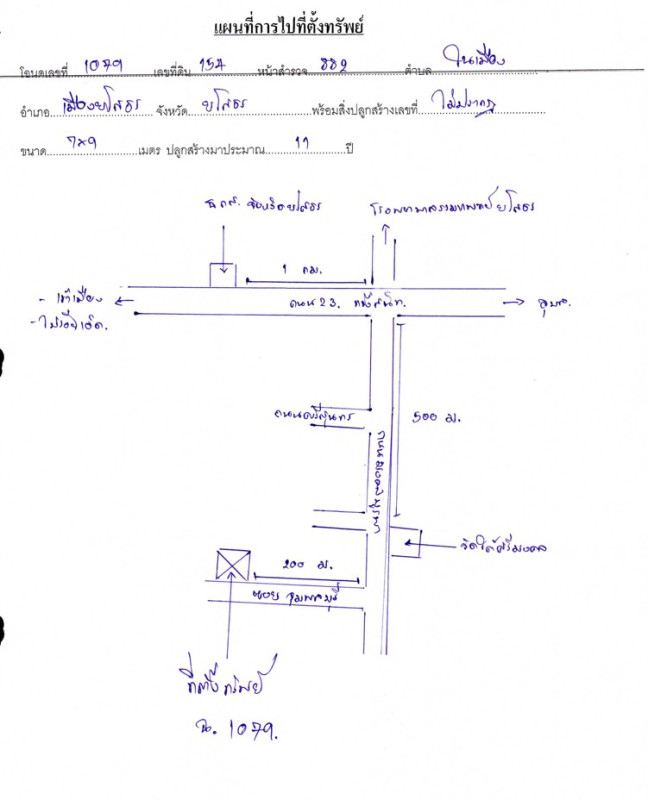 แผนที่การไปที่ตั้งทรัพย์
โฉนดเลขที่ 1079 เลขที่ดิน 157 หน้าสำรวจ 882 ตำบล ในเมือง
อำเภอ เมืองยโสธร จังหวัด ยโสธร พร้อมสิ่งปลูกสร้างเลขที่ ไม่ปรากฏ
ขนาด 7x9 เมตร ปลูกสร้างมาประมาณ 11 ปี
ธ.กส. จังหวัดยโสธร
โรงพยาบาลรวมแพทย์ยโสธร
1 กม.
- เข้าเมือง
ถนน 23.
- ไปร้อยเอ็ด.
500 ม.
200 ม.
ซอย
ที่ตั้งทรัพย์
ฉ. 1079.